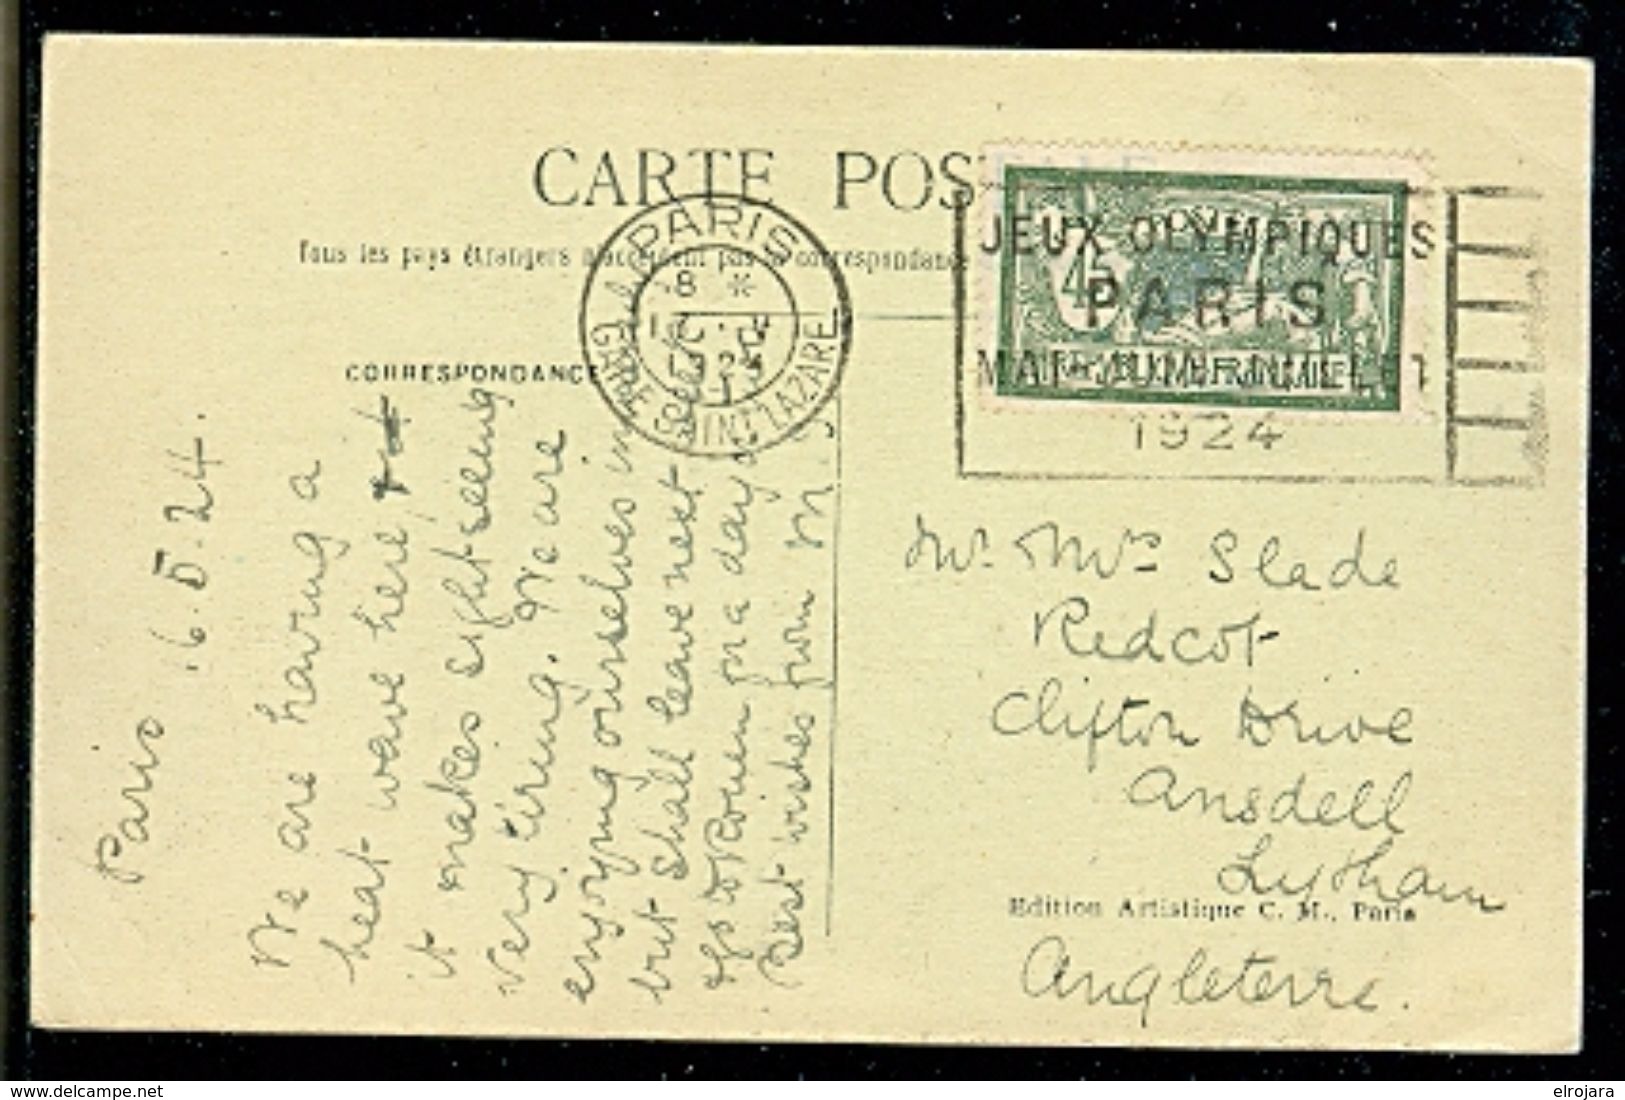 CARTE POSTALE
Tous les pays étrangers n'acceptent pas la correspondance
CORRESPONDANCE
PARIS
GARE SAINT LAZARE
1924
JEUX OLYMPIQUES
PARIS
MAI JUIN JUILLET
1924
45
Paris 16.V.24.
We are having a
heat wave here &
it makes sight seeing
very tiring. We are
enjoying ourselves
but shall leave next
for Rouen for a day
Best wishes from
Mr. Mrs Slade
Redcot
Clifton Drive
Ansdell
Lytham
Edition Artistique C. M., Paris
Angleterre.
elcs.delcampe.net
elrojara